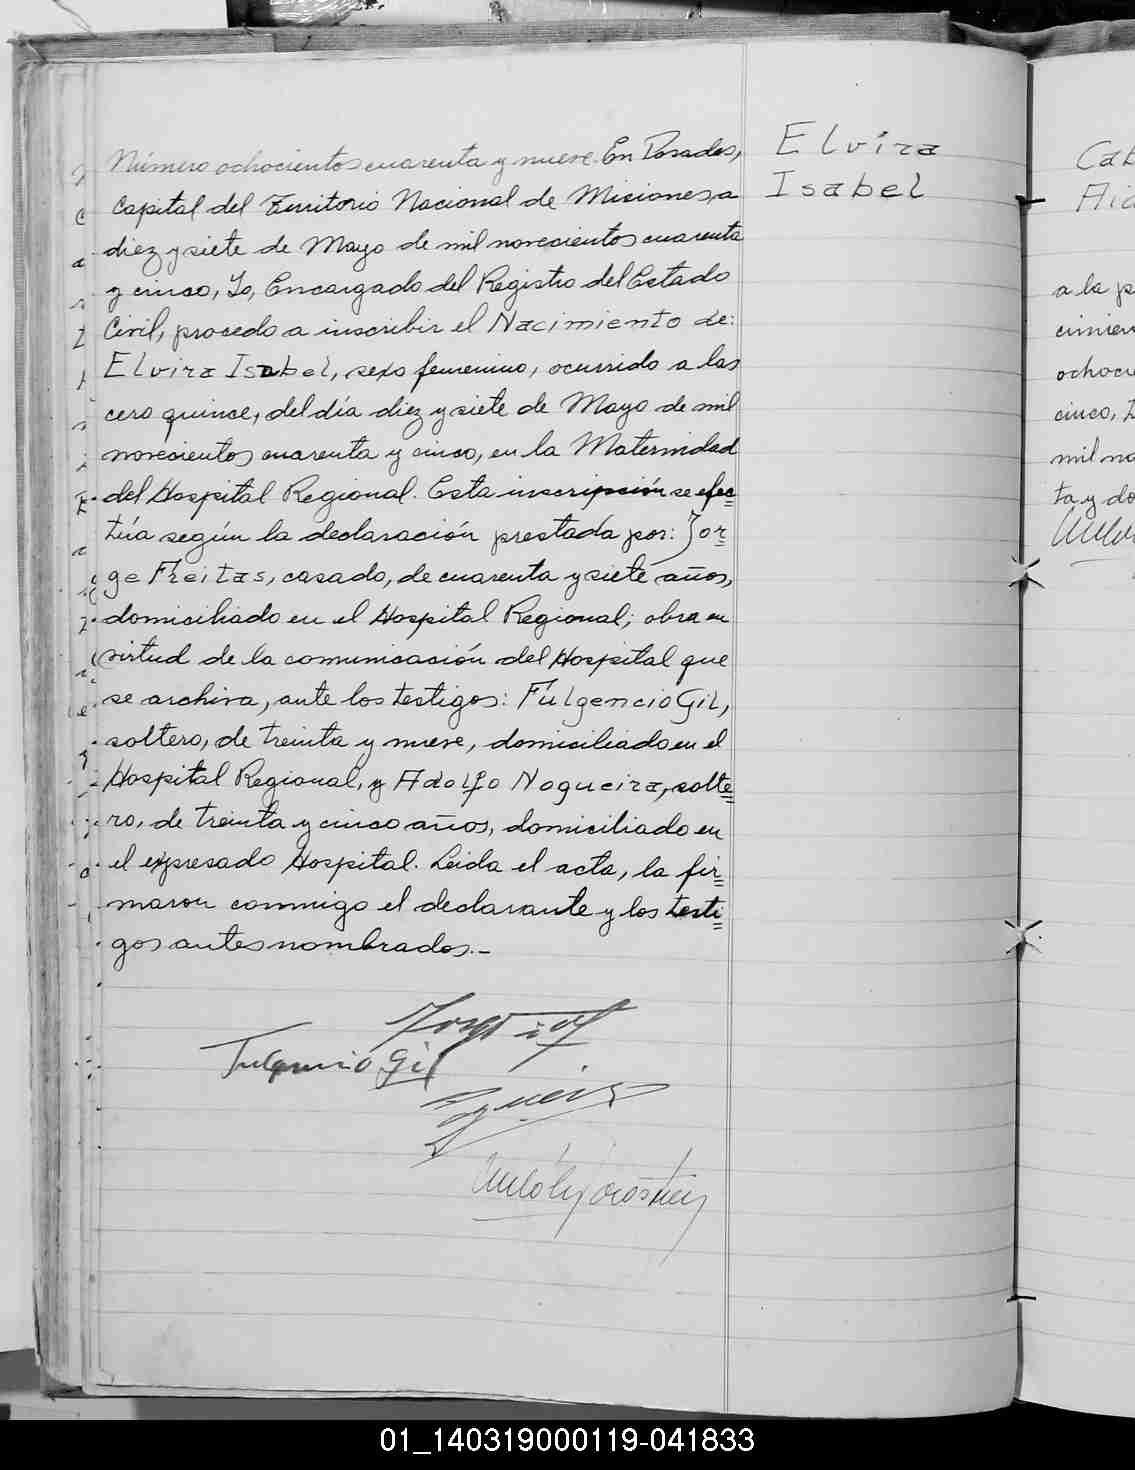 Elvira
Isabel
Número ochocientos cuarenta y nueve. En Posadas,
Capital del Territorio Nacional de Misiones, a
diez y siete de Mayo de mil novecientos cuarenta
y cinco, Yo, Encargado del Registro del Estado
Civil, procedo a inscribir el Nacimiento de:
Elvira Isabel, sexo femenino, ocurrido a las
cero quince, del día diez y siete de Mayo de mil
novecientos cuarenta y cinco, en la Maternidad
del Hospital Regional. Esta inscripción se efec=
túa según la declaración prestada por: Jor=
ge Freitas, casado, de cuarenta y siete años,
domiciliado en el Hospital Regional; obra en
virtud de la comunicación del Hospital que
se archiva, ante los testigos: Fulgencio Gil,
soltero, de treinta y nueve, domiciliado en el
Hospital Regional, y Adolfo Nogueira, solte=
ro, de treinta y cinco años, domiciliado en
el expresado Hospital. Leida el acta, la fir=
maron conmigo el declarante y los testi=
gos antes nombrados.-
Fulgencio Gil
Cab
Aid
a la p
cimien
ochoci
cinco,
mil no
ta y do
01_140319000119-041833